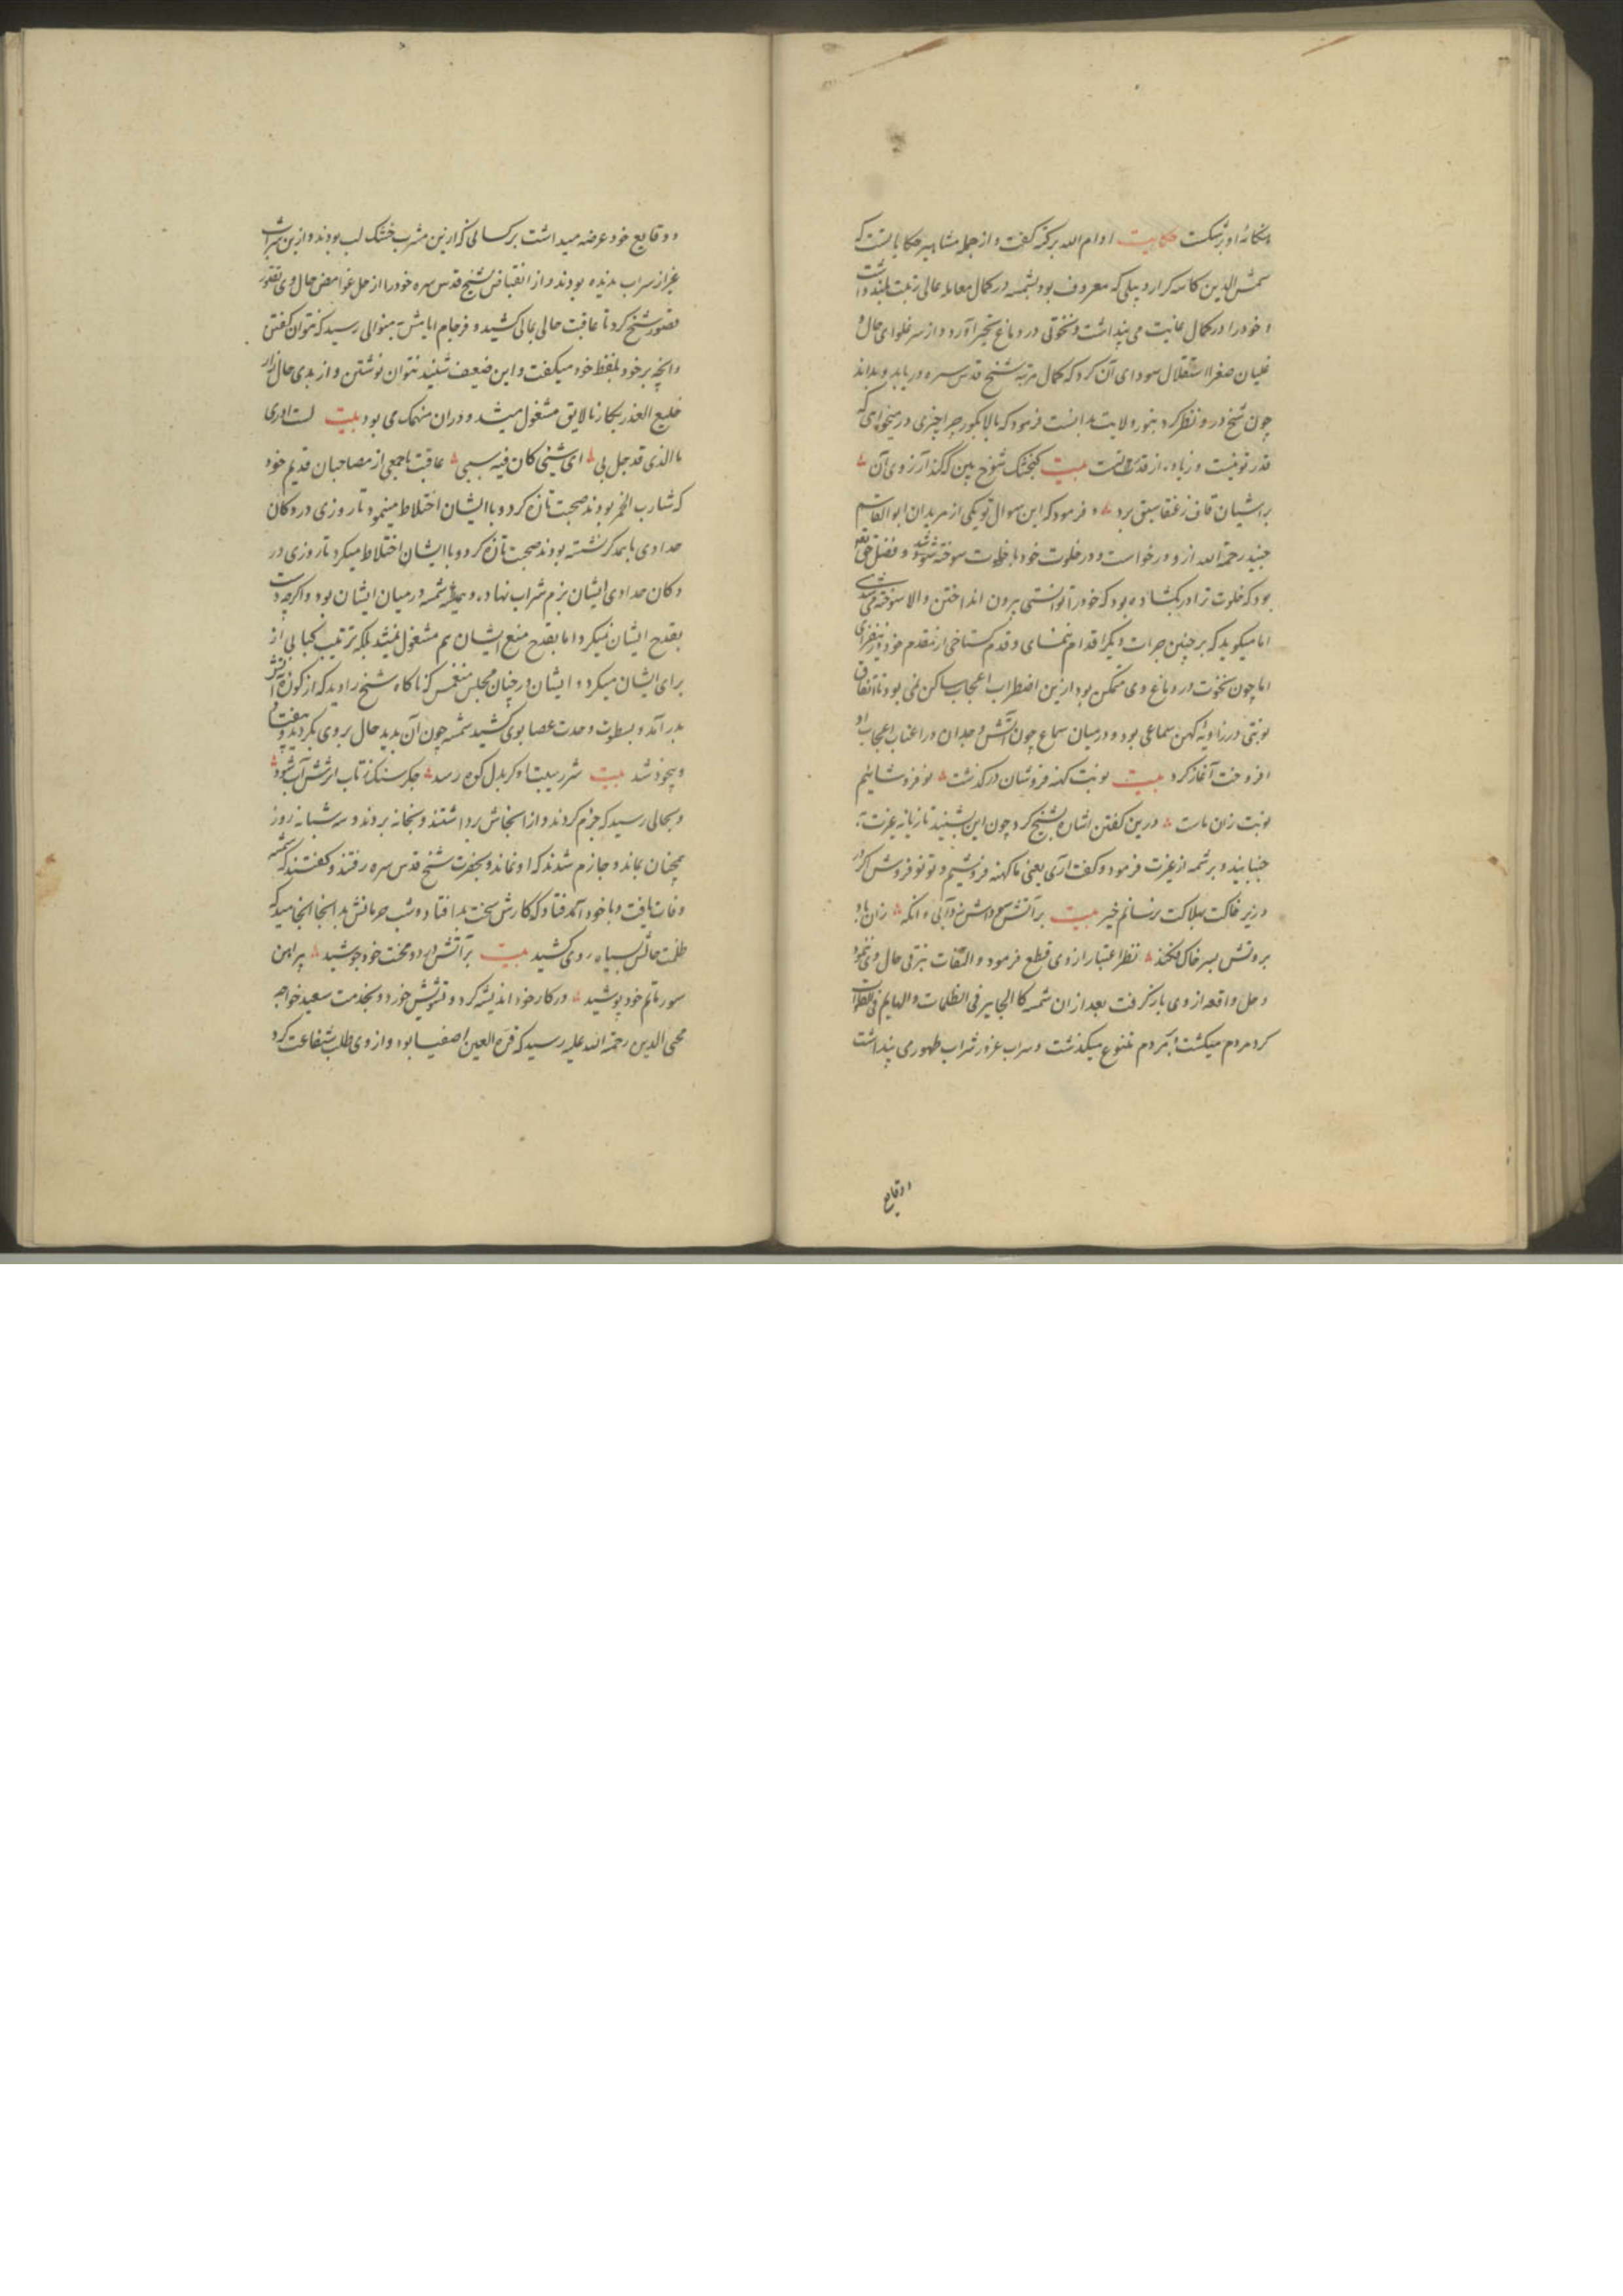 حکایت ادام الله برکته گفت و از جمله مشاهیر حکایات است که
شمس الدین کاسه گر اردبیلی که معروف بود بشمسه در کمال معامله عالی رتبت بلند داشت
و خود را در کمال عاقبت می پنداشت و نخوتی در دماغ تحیر آورد و از سر غلوای حال و
غلیان صفرا استقلال سودای آن کرد که کمال مرتبه شیخ قدس سره دریابد و بداند
چون شیخ درو نظر کرد بنور ولایت بدانست فرمود که بالا بگور چرا چیزی در میخواهی که
قدر تو نیست و زیاده از قدر تست بیت گنجشک شوخ بین که کند آرزوی آن
بر آشیان قاف ز عنقا سبق برد و فرمود که این سوال تو یکی از مریدان ابو القاسم
جنید رحمة الله ازو درخواست و در خلوت خود با خلوت سوخته شد و فضل حق
بود که خلوت ترا در بگشاده بود که خود را توانستی بیرون انداختن و الا سوخته می شدی
اما میگوید که بر چنین جرات دیگر اقدام ننمای و قدم گستاخی از مقدم خود
اما چون نخوت در دماغ وی متمکن بود ازین اضطراب اعجاب ساکن نمی بود تا اتفاق
نوبتی در زاویه کهن سماعی بود و در میان سماع چون آتش وجدان در
افروخت آغاز کرد بیت نوبت کهنه فروشان درگذشت نو فروشانیم
نوبت زان ماست درین گفتن اشاره بشیخ کرد چون این بشنید تازیانه غیرت
جنبانید و بر شمه از غیرت فرمود و گفت آری یعنی ما کهنه فروشیم و تو نو فروش اگر
در زیر خاکت بهلاکت نرسانم خیر بیت بر آتش
بروتش بسر خاک فکند نظر اعتبار از وی قطع فرمود و التفات بترقی حال وی ننمود
و حل واقعه از وی باز گرفت بعد از ان شمه کا الجایر فی الظلمات و الهایم فی الفلوات
گرد مردم میگشت و بر مردم متنوع میگذشت و سراب غرور شراب طهوری پنداشت
و وقایع
و وقایع خود عرضه میداشت بر کسانی که ازین مشرب خشک لب بودند و ازین شراب
غیر از سراب ندیده بودند و از انقباض شیخ قدس سره خود را از حل غوامض حال وی تصور
قصور شیخ کرد تا عاقبت حالی بحالی کشید و فرجام ایامش بمنوالی رسید که نتوان گفتن
و آنچه بر خود بلفظ خود میگفت و این ضعیف شنید نتوان نوشتن و از بدی حال زار
خلیع العذر بکار نالایق مشغول میشد و در ان منهمک می بود بیت لست ادری
ما الذی قد حل بی ای شیئی کان فیه سببی عاقبت با جمعی از مصاحبان قدیم خود
که شارب الخمر بودند صحبت تازه کرد و با ایشان اختلاط مینمود تا روزی در دکان
حدادی با همدگر نشسته بودند صحبت تازه کرد و با ایشان اختلاط میکرد تا روزی در
دکان حدادی ایشان بزم شراب نهاده و شمه در میان ایشان بود و اگر چه دست
بقدح ایشان نمیکرد اما بقدح منع ایشان هم مشغول نمیشد بلکه ترتیب کبابی از
برای ایشان میکرد و ایشان در چنان مجلس منغمس که ناگاه شیخ را دید که از کوزه آتش
بدر آمد و بسطوت وحدت عصا بوی کشید شمه چون آن بدید حال بر وی بگردید و بیفتاد
و بیخود شد بیت شرر هیبت او گر بدل کوه رسد جگر سنک ز تاب اثرش آب شود
و بحالی رسید که جزم کردند و از انجاش برداشتند و بخانه بردند و سه شبانه روز
همچنان بماند و جازم شدند که او نماند و بحضرت شیخ قدس سره رفتند و گفتند که شمسه
وفات یافت و با خود آمد فتاد که کارش سخت بد افتاد و شب حرمانش بد انجا انجامید که
ظلمت حالش بسیاه روی کشید بیت بر آتش درد و محنت خود جوشید پیراهن
سور ماتم خود پوشید در کار خود اندیشه کرد و تشویش خورد و بخدمت سعید خواجه
محی الدین رحمة الله علیه رسید که قرة العین اصفیا بود و از وی طلب شفاعت کرد